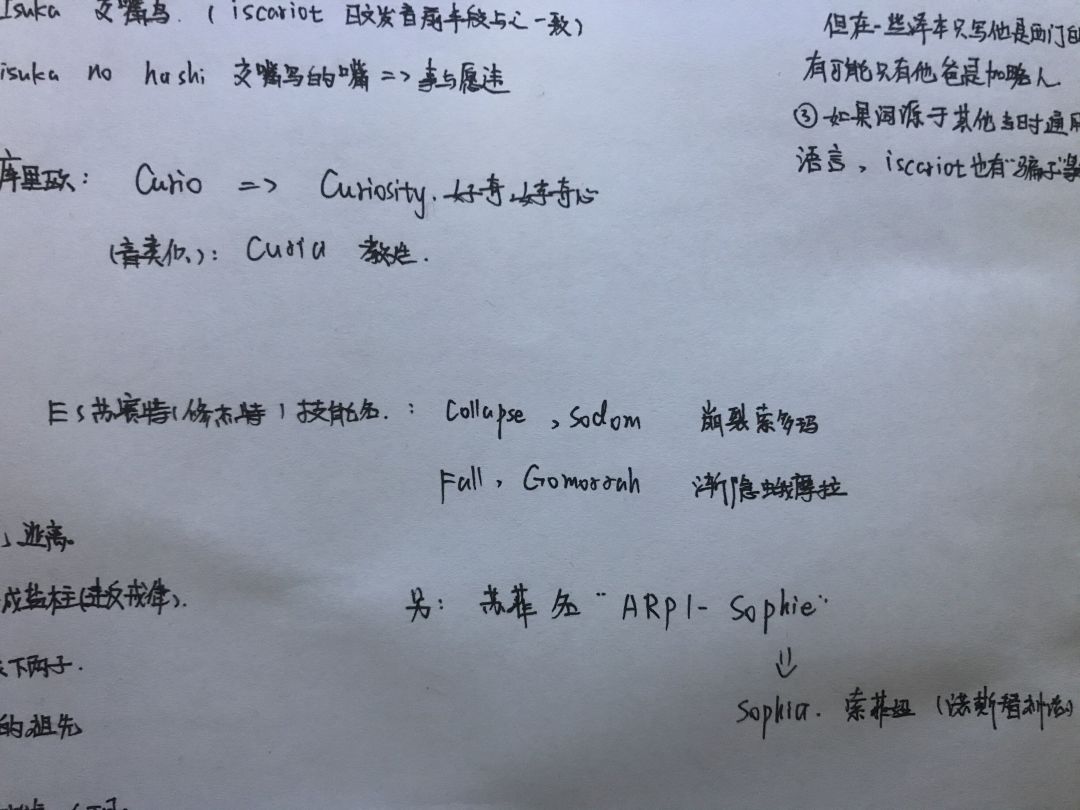 Isuka 交嘴鸟.（iscariot 日文发音前半段与之一致）
isuka no hashi 交嘴鸟的嘴 => 事与愿违
库里欧: Curio => Curiosity. 好奇,好奇心
(音类似.): Curia 教廷.
但在一些译本只写他是西门的
有可能只有他爸是加略人
③如果词源于其他当时通用
语言，iscariot也有"骗子"等
Es苏赛特(修杰特)技能名.: Collapse , Sodom 崩裂索多玛
Fall , Gomorrah 渐隐蛾摩拉
逃离。
成盐柱(违反戒律).
下两子.
的祖先
另: 苏菲 名 "ARPI-Sophie"
⇓
Sophia. 索菲娅 (诺斯替